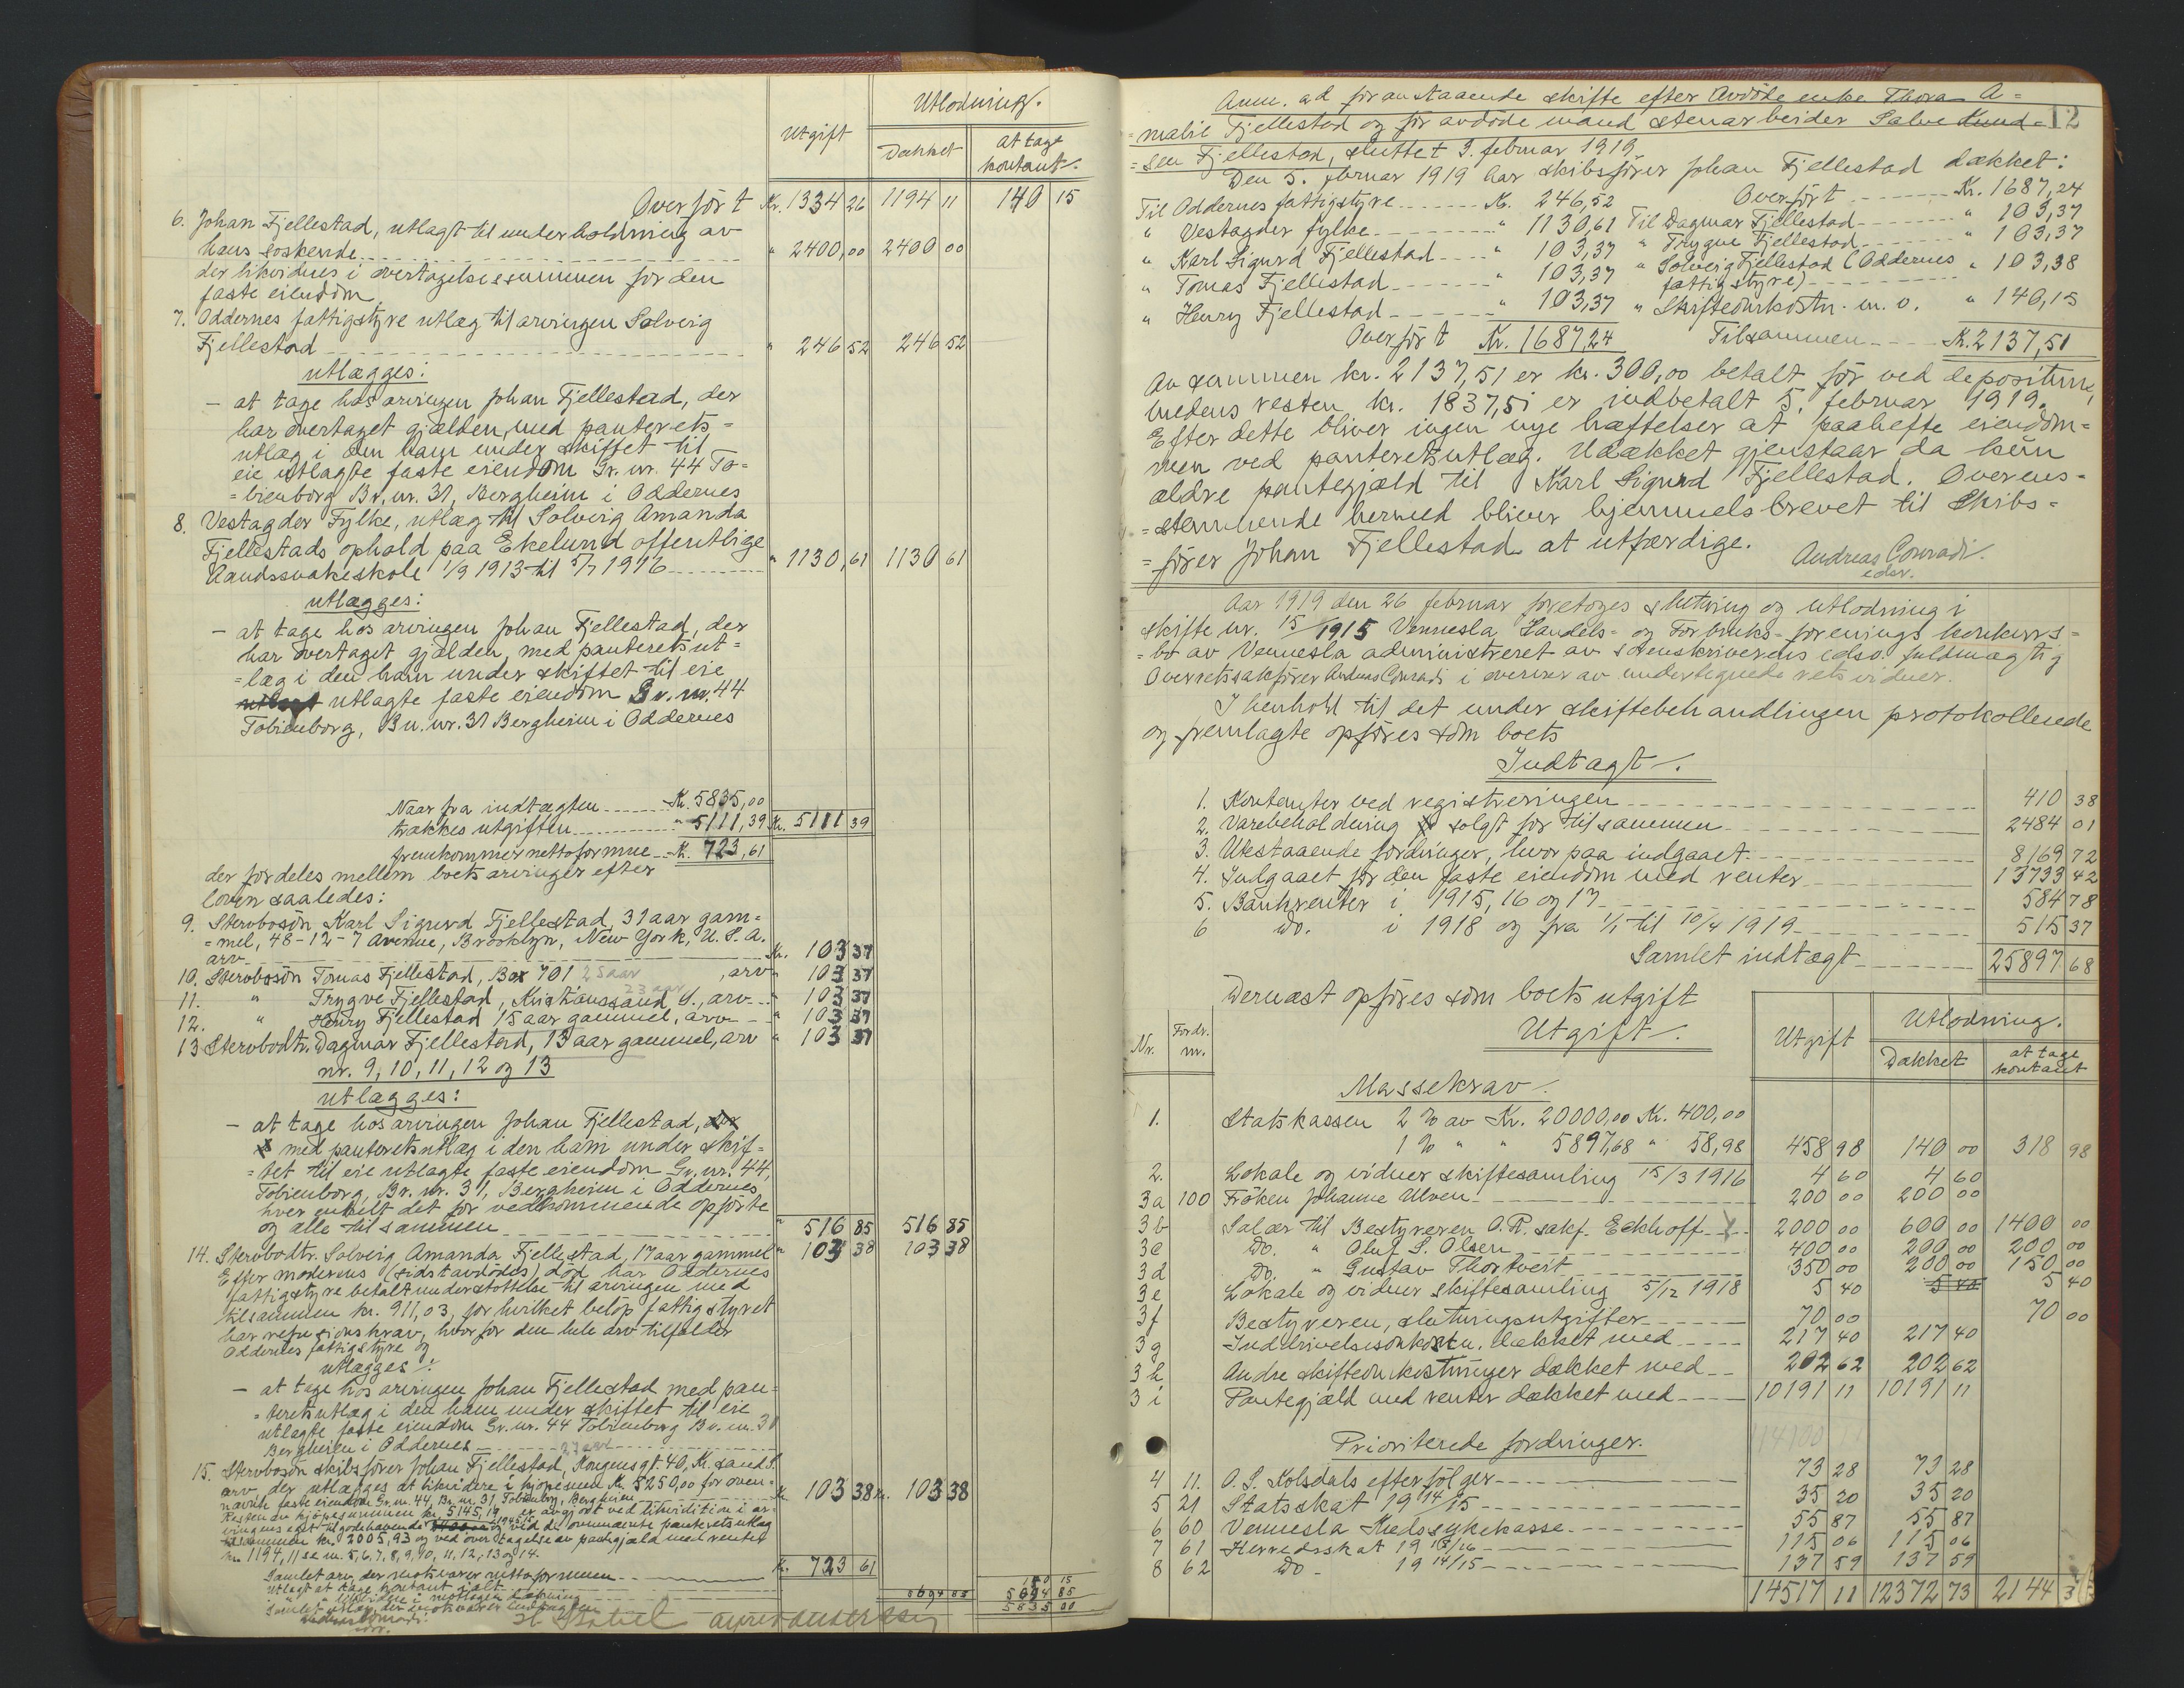 Utgift
Utlodning.
Dækket
at tage
kontant.
Overført Kr. 1334 26 1194 11 140 15
6. Johan Fjellestad, utlagt til underholdning av
hans søskende " 2400,00 2400 00
der likvideres i overtagelsessummen for den
faste eiendom
7. Oddernes fattigstyre utlæg til arvingen Solveig
Fjellestad " 246 52 246 52
utlægges:
- at tage hos arvingen Johan Fjellestad, der
har overtaget gjælden, med panterets=
utlæg i den ham under skiftet til
eie utlagte faste eiendom Gr. nr. 44 To=
=bienborg Br. nr. 31, Bergheim i Oddernes
8. Vestagder Fylke, utlæg til Solveig Amanda
Fjellestads ophold paa Ekelund offentlige
Aandssvakeskole 1/9 1913 til 5/7 1916 " 1130,61 1130 61
utlægges:
- at tage hos arvingen Johan Fjellestad, der
har overtaget gjælden, med panteretsut=
=læg i den ham under skiftet til eie
utlagt utlagte faste eiendom Gr. nr. 44
Tobienborg, Br. nr. 31 Bergheim i Oddernes
Naar fra indtægten Kr. 5835,00
trækkes utgiften " 5111,39 Kr. 5111 39
fremkommer nettoformue Kr. 723,61
der fordeles mellem boets arvinger efter
loven saaledes:
9. Stervbosøn Karl Sigurd Fjellestad, 31 aar gam=
=mel, 48-12-7 Avenue, Brooklyn, New York, U. S. A.
arv Kr. 103 37
10. Stervbosøn Tomas Fjellestad, Box 701 25 aar, arv " 103 37
23 aar
11. " Trygve Fjellestad, Kristianssand S., arv " 103 37
12. " Henry Fjellestad 15 aar gammel, arv " 103 37
13 Stervbodtr. Dagmar Fjellestad, 13 aar gammel, arv " 103 37
nr. 9, 10, 11, 12 og 13
utlægges:
- at tage hos arvingen Johan Fjellestad,
med panteretsutlæg i den ham under skif=
=tet til eie utlagte faste eiendom Gr. nr. 44,
Tobienborg, Br. nr. 31, Bergheim i Oddernes
hver enkelt det for vedkommende opførte
og alle tilsammen " 516 85 516 85
14. Stervbodtr. Solveig Amanda Fjellestad, 17 aar gammel " 103 38 103 38
Efter moderens (sidstavdødes) død har Oddernes
fattigstyre betalt understøttelse til arvingen med
tilsammen kr. 911,03, for hvilket beløp fattigstyret
har refusionskrav, hvorfor den hele arv tilfalder
Oddernes fattigstyre og
utlægges:
- at tage hos arvingen Johan Fjellestad med pan=
=teretsutlæg i den ham under skiftet til eie
utlagte faste eiendom Gr. nr. 44 Tobienborg Br. nr. 31
Bergheim i Oddernes
27 aar
15. Stervbosøn skibsfører Johan Fjellestad, Kongensgt. 40, Kr.sand S.
arv, der utlægges at likvidere i kjøpesum Kr. 5250,00 for oven=
nævnte faste eiendom Gr. nr. 44, Br. nr. 31 Tobienborg, Bergheim Kr. 103 38 Kr. 103 38
Resten av kjøpesummen kr. 5145,19 er avgjort ved likvidition i ar=
vingens eget tilgodehavende og ved de ovennævnte panteretsutlæg
tilsammen kr. 2005,93 og ved overtagelse av pantegjæld med renter
kr. 1194,11 se nr. 5, 6, 7, 8, 9, 10, 11, 12, 13 og 14.
Samlet arv, der motsvarer nettoformuen Kr. 723 61
Utlagt at tage kontant ialt 140 15
5694 85 5694 85
Samlet utlæg der motsvarer indtægten 5835 00
Andreas Conradi
edsv.

12
Anm. ad foranstaaende skifte efter avdøde enke Thora A=
=malie Fjellestad og før avdøde mand stenarbeider Salve Knud=
=sen Fjellestad, sluttet 3. februar 1919.
Den 5. februar 1919 har skibsfører Johan Fjellestad dækket:
Til Oddernes fattigstyre Kr. 246,52
" Vestagder fylke " 1130,61
" Karl Sigurd Fjellestad " 103,37
" Tomas Fjellestad " 103,37
" Henry Fjellestad " 103,37
Overført Kr. 1687,24
Overført Kr. 1687,24
Til Dagmar Fjellestad " 103,37
" Trygve Fjellestad " 103,37
" Solveig Fjellestad (Oddernes " 103,38
fattigstyre)
" Skifteomkostn. m. v. " 140,15
Tilsammen Kr. 2137,51
Av summen kr. 2137,51 er kr. 300,00 betalt før ved depositum,
medens resten kr. 1837,51 er indbetalt 5. februar 1919.
Efter dette bliver ingen nye hæftelser at paahefte eiendom=
men ved panteretsutlæg. Udækket gjenstaar da kun
ældre pantegjæld til Karl Sigurd Fjellestad. Overens=
=stemmende hermed bliver hjemmelsbrevet til Skibs=
=fører Johan Fjellestad at utfærdige.
Andreas Conradi.
edsv.
Aar 1919 den 26 februar foretoges slutning og utlodning i
skifte nr. 15/1915 Vennesla Handels- og Forbruks-forenings konkurs=
=bo av Vennesla administreret av sorenskriverens edsv. fuldmægtig
Overretssakfører Andreas Conradi i overvær av undertegnede retsvidner.
I henhold til det under skiftebehandlingen protokollerede
og fremlagte opføres som boets
Indtægt.
1. Kontanter ved registreringen 410 38
2. Varebeholdning solgt for tilsammen 2484 01
3. Utestaaende fordringer, hvorpaa indgaaet 8169 72
4. Indgaaet for den faste eiendom med renter 13733 42
5. Bankrenter i 1915, 16 og 17 584 78
6 Do. i 1918 og fra 1/1 til 10/4 1919 515 37
Samlet indtægt 25897 68
Dernæst opføres som boets utgift
Utgift.
Nr.
Fordr. nr.
Utgift
Utlodning.
Dækket
at tage kontant
Massekrav.
1. Statskassen 2 % av Kr. 20000,00 Kr. 400,00
1 % " " 5897,68 " 58,98 458 98 140 00 318 98
2. Lokale og vidner skiftesamling 15/3 1916 4 60 4 60
3a 100 Frøken Johanne Ulven 200 00 200 00
3b Salær til Bestyreren O.R. sakf. Eckhoff 2000 00 600 00 1400 00
3c Do. " Oluf S. Olsen 400 00 200 00 200 00
3d Do. " Gustav Thortveit 350 00 200 00 150 00
3e Lokale og vidner skiftesamling 5/12 1918 5 40 5 40 5 40
3f Bestyreren, slutningsutgifter 70 00 70 00
3g Inddrivelsesomkostn. dækket med 217 40 217 40
3h Andre skifteomkostninger dækket med 202 62 202 62
3i Pantegjæld med renter dækket med 10191 11 10191 11
Prioriterede fordringer.
4 11. O. S. Kolsdals efterfølger 73 28 73 28
5 21 Statsskat 1914/15 35 20 35 20
6 60 Vennesla Kredssykekasse 55 87 55 87
7 61 Herredsskat 1915/16 115 06 115 06
8 62 Do. 1914/15 137 59 137 59
14517 11 12372 73 2144 3